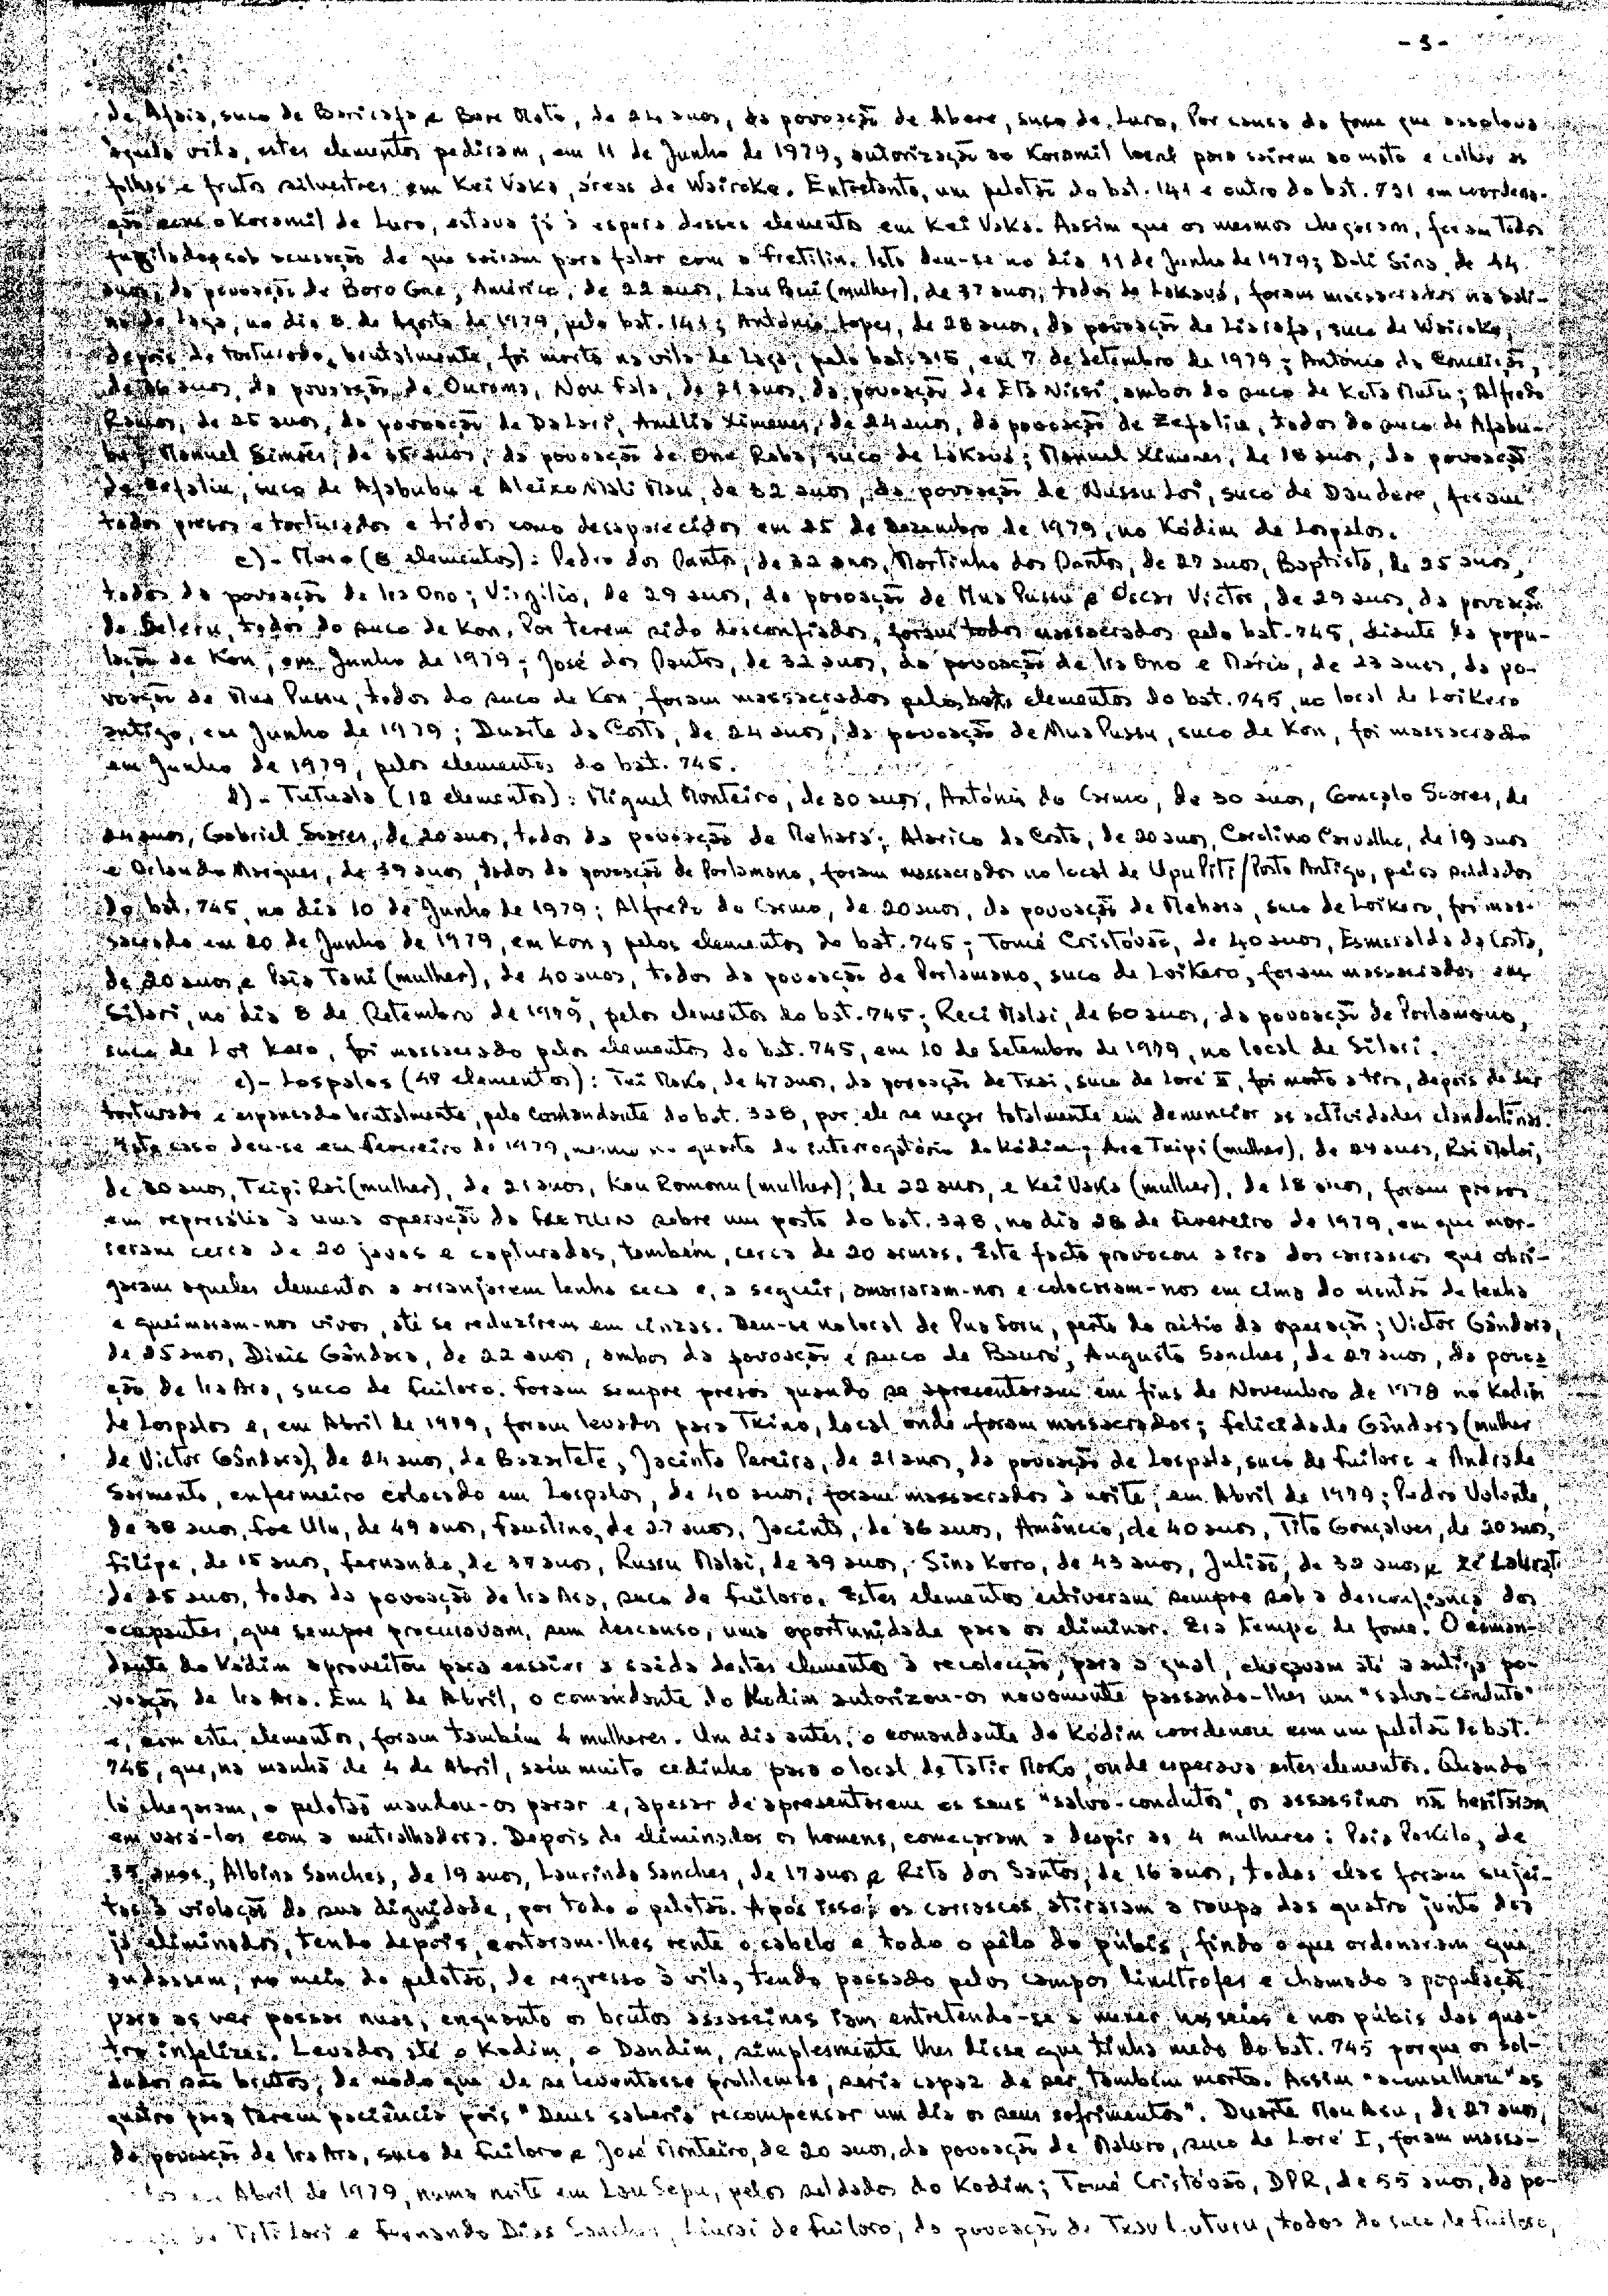 - 3 -
de Afaia, suco de Baricafa e Bare Moto, de 24 anos, da povoação de Abere, suco de Luro. Por causa da fome que assolava
aquela vila, estes elementos pediram, em 11 de Junho de 1979, autorização ao Koramil local para sairem ao mato e colher as
folhas e frutos silvestres em Kei Vaka, áreas de Wairoke. Entretanto, um pelotão do bat. 141 e outro do bat. 731 em coordena-
ção com o Koramil de Luro, estava já à espera desses elementos em Kei Vaka. Assim que os mesmos chegaram, foram todos
fuzilados sob acusação de que sairam para falar com a Fretilin. Isto deu-se no dia 11 de Junho de 1979; Dali Sina, de 44
anos, da povoação de Boro Gne, Américo, de 22 anos, Lau Buí (mulher), de 37 anos, todos de Lakavá, foram massacrados na
de Laga, no dia 8 de Agosto de 1979, pelo bat. 141; António Lopes, de 28 anos, da povoação de Liarafa, suco de Wairoke,
depois de torturado, brutalmente, foi morto na vila de Laga, pelo bat. 315, em 7 de Setembro de 1979; António da Conceição,
de 26 anos, da povoação de Ouroma, Nou Fala, de 21 anos, da povoação de Eta Nissi, ambos do suco de Kota Mutu; Alfredo
Ramos, de 25 anos, da povoação de Dalari, Amélia Ximenes, de 24 anos, da povoação de Zefaliu, todos do suco de Afabu-
bu; Manuel Simões, de 35 anos, da povoação de Ona Raba, suco de Lakavá; Manuel Ximenes, de 18 anos, da povoação
de Zefaliu, suco de Afabubu e Aleixo Mali Mau, de 32 anos, da povoação de Nussu Loi, suco de Daudere, foram
todos presos e torturados e tidos como desaparecidos em 25 de Dezembro de 1979, no Kodim de Lospalos.
c)- Moro (8 elementos): Pedro dos Santos, de 32 anos, Martinho dos Santos, de 27 anos, Baptista, de 25 anos,
todos da povoação de Ira Ono; Virgílio, de 29 anos, da povoação de Mua Pussu e Óscar Victor, de 29 anos, da povoação
de Deleru, todos do suco de Kon. Por terem sido desconfiados, foram todos massacrados pelo bat. 745, diante da popu-
lação de Kon, em Junho de 1979; José dos Santos, de 32 anos, da povoação de Ira Ono e Mário, de 23 anos, da po-
voação de Mua Pussu, todos do suco de Kon, foram massacrados pelos elementos do bat. 745, no local de Loikero
antigo, em Junho de 1979; Duarte da Costa, de 24 anos, da povoação de Mua Pussu, suco de Kon, foi massacrado
em Junho de 1979, pelos elementos do bat. 745.
d)- Tutuala (12 elementos): Miguel Monteiro, de 30 anos, António do Carmo, de 30 anos, Gonçalo Soares, de
24 anos, Gabriel Soares, de 20 anos, todos da povoação de Mehara; Alarico da Costa, de 20 anos, Carolino Carvalho, de 19 anos
e Orlando Marques, de 39 anos, todos da povoação de Porlamano, foram massacrados no local de Upu Piti/Posto Antigo, pelos soldados
do bat. 745, no dia 10 de Junho de 1979; Alfredo do Carmo, de 20 anos, da povoação de Mehara, suco de Loikero, foi mas-
sacrado em 20 de Junho de 1979, em Kon, pelos elementos do bat. 745; Tomé Cristóvão, de 40 anos, Esmeralda da Costa,
de 20 anos e Paia Tani (mulher), de 40 anos, todos da povoação de Porlamano, suco de Loikero, foram massacrados em
Silari, no dia 8 de Setembro de 1979, pelos elementos do bat. 745; Reci Malai, de 60 anos, da povoação de Porlamano,
suco de Loi Karo, foi massacrado pelos elementos do bat. 745, em 10 de Setembro de 1979, no local de Silari.
e)- Lospalos (48 elementos): Tui Moko, de 47 anos, da povoação de Txai, suco de Loré II, foi morto a tiro, depois de ser
torturado e espancado brutalmente, pelo comandante do bat. 328, por ele se negar totalmente em denunciar as actividades clandestinas.
Este caso deu-se em Fevereiro de 1979, mesmo no quarto de interrogatório do Kodim; Ara Txipi (mulher), de 24 anos, Rai Malai,
de 30 anos, Txipi Rai (mulher), de 21 anos, Kau Romanu (mulher), de 22 anos, e Kei Vaka (mulher), de 18 anos, foram presos
em represália à uma operação da Fretilin sobre um posto do bat. 328, no dia 28 de Fevereiro de 1979, em que mor-
reram cerca de 20 javas e capturadas, também, cerca de 20 armas. Este facto provocou a ira dos carrascos que obri-
garam aqueles elementos a arranjarem lenha seca e, a seguir, amarraram-nos e colocaram-nos em cima do montão de lenha
e queimaram-nos vivos, até se reduzirem em cinzas. Deu-se no local de Pua Soru, perto do sítio da operação; Victor Gândara,
de 25 anos, Dinis Gândara, de 22 anos, ambos da povoação e suco de Bauro, Augusto Sanches, de 27 anos, da povoa
ção de Ira Ara, suco de Fuiloro. Foram sempre presos quando se apresentaram em fins de Novembro de 1978 no Kodim
de Lospalos e, em Abril de 1979, foram levados para Txino, local onde foram massacrados; Felicidade Gândara (mulher
de Victor Gândara), de 24 anos, de Bazartete, Jacinta Pereira, de 21 anos, da povoação de Lospala, suco de Fuiloro e Andrade
Sarmento, enfermeiro colocado em Lospalos, de 40 anos, foram massacrados à noite, em Abril de 1979; Pedro Valente,
de 38 anos, Foe Ulu, de 49 anos, Faustino, de 27 anos, Jacinto, de 36 anos, Amâncio, de 40 anos, Tito Gonçalves, de 20 anos,
Filipe, de 15 anos, Fernando, de 37 anos, Russu Malai, de 39 anos, Sina Koro, de 43 anos, Julião, de 32 anos e Zé
de 25 anos, todos da povoação de Ira Ara, suco de Fuiloro. Estes elementos estiveram sempre sob a desconfiança dos
ocupantes, que sempre procuravam, sem descanso, uma oportunidade para os eliminar. Era tempo de fome. O coman-
dante do Kodim aproveitou para ensaiar a saída destes elementos à recolecção, para a qual, chegavam até a antiga po-
voação de Ira Ara. Em 4 de Abril, o comandante do Kodim autorizou-os novamente passando-lhes um "salvo-conduto"
e, com estes elementos, foram também 4 mulheres. Um dia antes, o comandante do Kodim coordenou com um pelotão do bat.
745, que, na manhã de 4 de Abril, saiu muito cedinho para o local de Tatir Moko, onde esperava estes elementos. Quando
lá chegaram, o pelotão mandou-os parar e, apesar de apresentarem os seus "salvo-condutos", os assassinos não hesitaram
em vará-los com a metralhadora. Depois de eliminados os homens, começaram a despir as 4 mulheres: Paia Pokilo, de
37 anos, Albina Sanches, de 19 anos, Laurinda Sanches, de 17 anos e Rita dos Santos, de 16 anos, todas elas foram sujei-
tas à violação da sua dignidade, por todo o pelotão. Após isso, os carrascos atiraram a roupa das quatro junto dos
já eliminados, tendo depois, cortaram-lhes rente o cabelo e todo o pêlo do púbis, findo o que ordenaram que
andassem, no meio do pelotão, de regresso à vila, tendo passado pelos campos limítrofes e chamado a população
para as ver passar nuas, enquanto os brutos assassinos iam entretendo-se a mexer nos seios e nos púbis das qua-
tro infelizes. Levadas até o Kodim, o Dandim, simplesmente lhes disse que tinha medo do bat. 745 porque os sol-
dados são brutos, de modo que ele se levantasse problemas, seria capaz de ser também morto. Assim "aconselhou" as
quatro para terem paciência pois "Deus saberia recompensar um dia os seus sofrimentos". Duarte Mau Asu, de 27 anos,
da povoação de Ira Ara, suco de Fuiloro e José Monteiro, de 20 anos, da povoação de Maluro, suco de Loré I, foram massa-
Abril de 1979, numa noite em Lau Sepu, pelos soldados do Kodim; Tomé Cristóvão, DPR, de 55 anos, da po-
de Titi Lari e Fernando Dias Sanches, Liurai de Fuiloro, da povoação de Txau Luturu, todos do suco de Fuiloro,